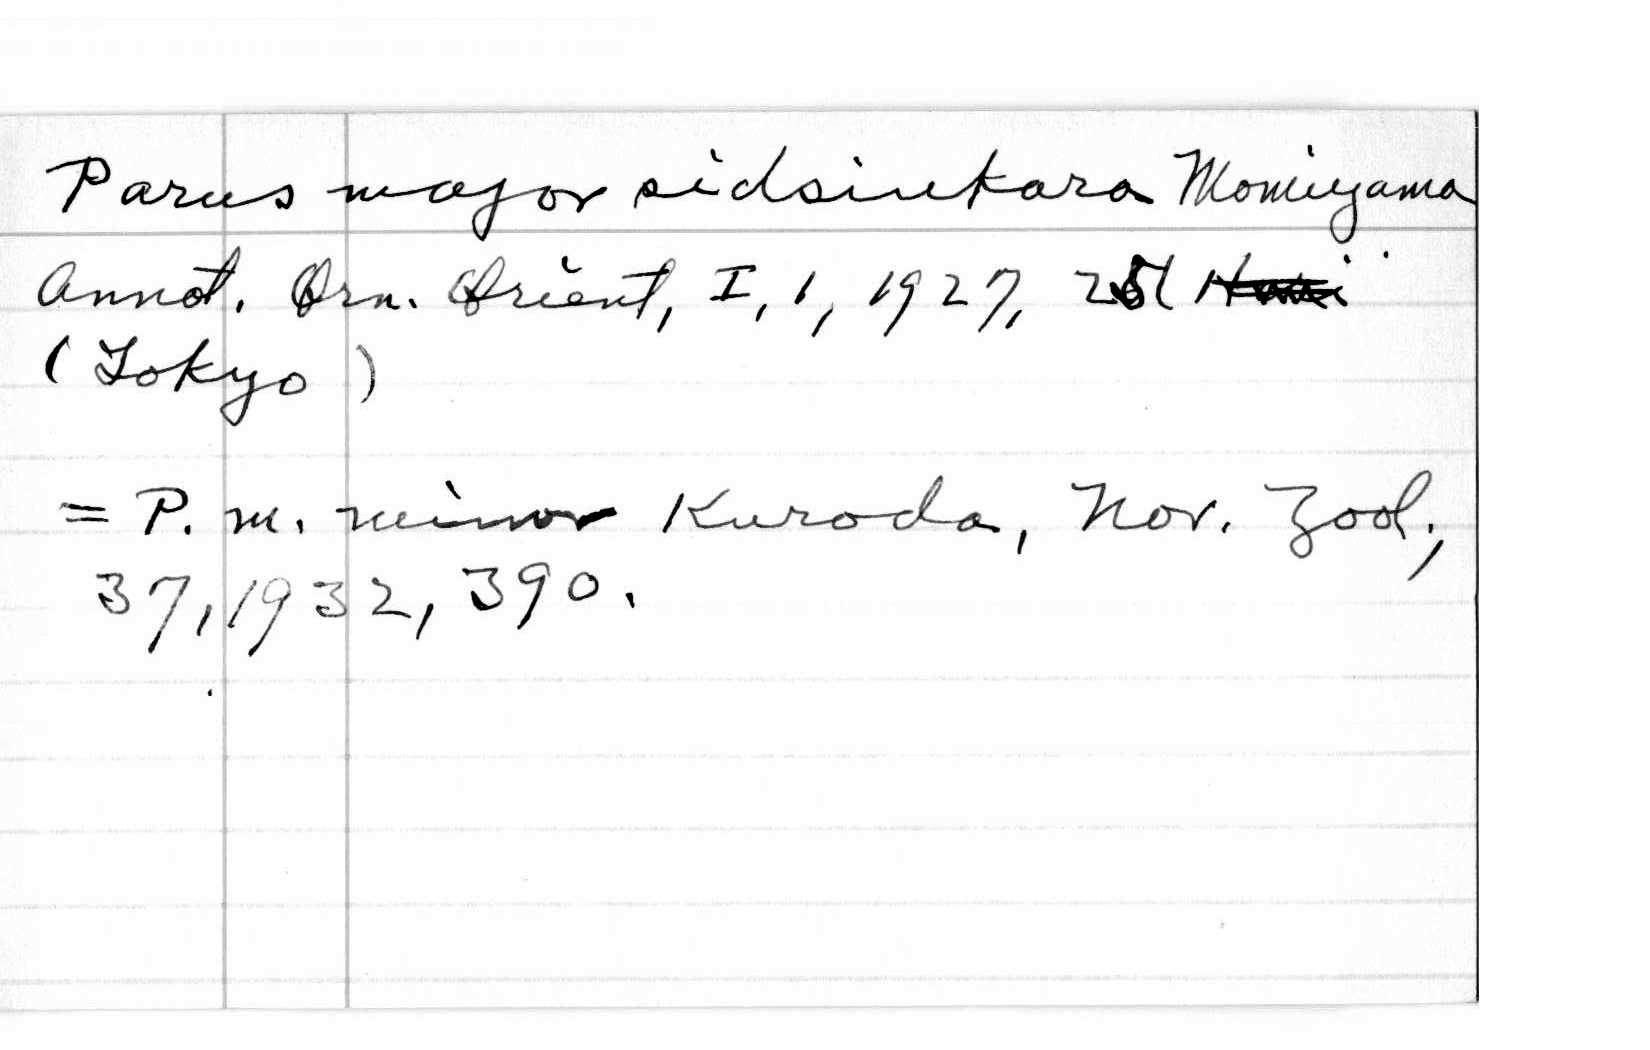 Parus major sidsinkara Momiyama
Annot. Orn. Orient, I, 1, 1927, 251
(Tokyo)
= P. m. minor Kuroda, Nov. Zool.,
37, 1932, 390.